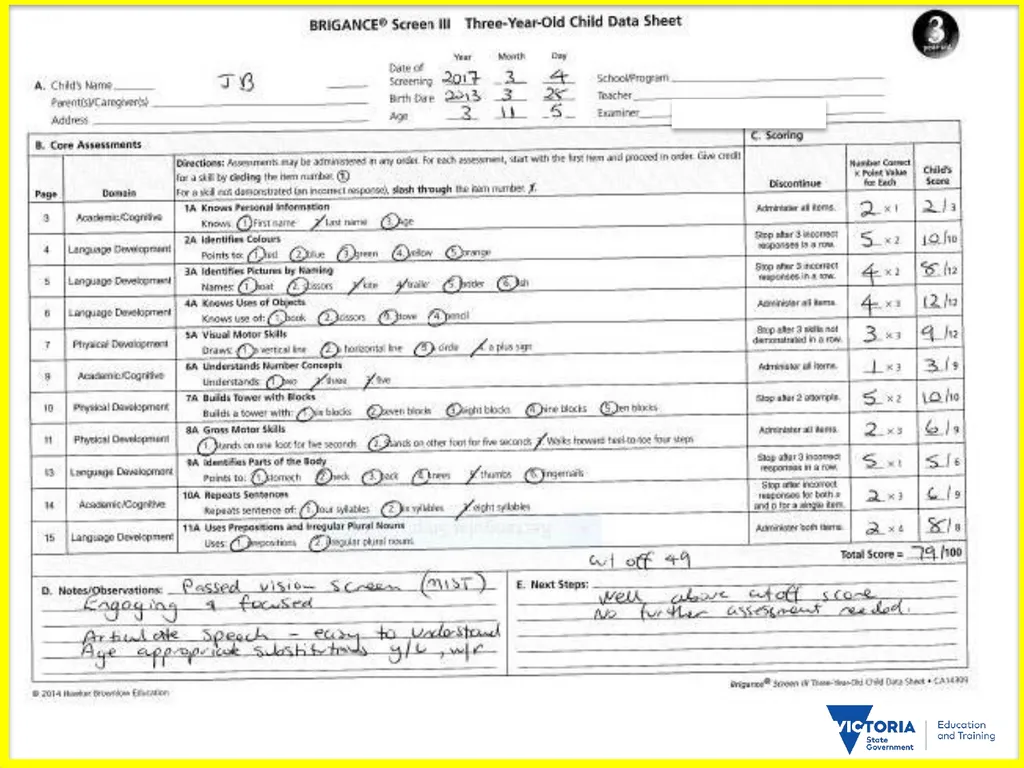 BRIGANCE® Screen III Three-Year-Old Child Data Sheet
3
year-old
Year Month Day
A. Child's Name JB
Date of Screening 2017 3 4
School/Program
Parent(s)/Caregiver(s)
Birth Date 2013 3 28
Teacher
Address
Age 3 11 5
Examiner
B. Core Assessments
C. Scoring
Page Domain
Directions: Assessments may be administered in any order. For each assessment, start with the first item and proceed in order. Give credit
for a skill by circling the item number.
For a skill not demonstrated (an incorrect response), slash through the item number.
Discontinue
Number Correct x Point Value for Each
Child's Score
3 Academic/Cognitive
1A Knows Personal Information
Knows: 1 First name 2 Last name 3 Age
Administer all items. 2 x 1 2/3
4 Language Development
2A Identifies Colours
Points to: 1. red 2. blue 3. green 4. yellow 5. orange
Stop after 3 incorrect responses in a row. 5 x 2 10/10
5 Language Development
3A Identifies Pictures by Naming
Names: 1. boat 2. scissors 3. kite 4. 5. 6.
Stop after 3 incorrect responses in a row. 4 x 2 8/12
6 Language Development
4A Knows Uses of Objects
Knows use of: 1. book 2. scissors 3. stove 4. pencil
Administer all items. 4 x 3 12/12
7 Physical Development
5A Visual Motor Skills
Draws: 1. a vertical line 2. a horizontal line 3. a circle 4. a plus sign
Stop after 3 skills not demonstrated in a row. 3 x 3 9/12
9 Academic/Cognitive
6A Understands Number Concepts
Understands: 1. two 2. three 3. five
Administer all items. 1 x 3 3/9
10 Physical Development
7A Builds Tower with Blocks
Builds a tower with: 1. six blocks 2. seven blocks 3. eight blocks 4. nine blocks 5. ten blocks
Stop after 2 attempts. 5 x 2 10/10
11 Physical Development
8A Gross Motor Skills
1. Stands on one foot for five seconds 2. Stands on other foot for five seconds 3. Walks forward heel-to-toe four steps
Administer all items. 2 x 3 6/9
13 Language Development
9A Identifies Parts of the Body
Points to: 1. stomach 2. neck 3. back 4. knees 5. thumbs 6. fingernails
Stop after 3 incorrect responses in a row. 5 x 1 5/6
14 Academic/Cognitive
10A Repeats Sentences
Repeats sentence of: 1. four syllables 2. six syllables 3. eight syllables
Stop after incorrect responses for both a and b for a single item. 2 x 3 6/9
15 Language Development
11A Uses Prepositions and Irregular Plural Nouns
Uses: 1. prepositions 2. irregular plural nouns
Administer both items. 2 x 4 8/8
cut off 49
Total Score = 79/100
D. Notes/Observations: Passed vision screen (MIST)
Engaging & focused
Articulate speech - easy to understand
Age appropriate substitutions y/L, w/r
E. Next Steps:
Well above cutoff score
No further assessment needed.
© 2014 Hawker Brownlow Education
Brigance® Screen III Three-Year-Old Child Data Sheet • CA14309
VICTORIA
State
Government
Education
and Training